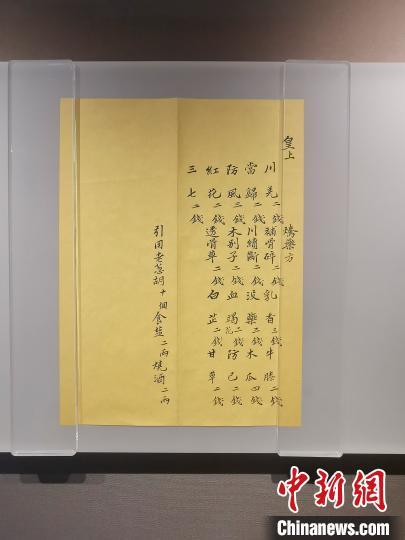 皇上 熥藥方
川羌二錢 骨碎二錢 乳香三錢 牛膝二錢
當歸二錢 川續斷二錢 沒藥二錢 木瓜四錢
防風三錢 木別子二錢 血竭花二錢 防己二錢
紅花二錢 透骨草二錢 白芷二錢 甘草二錢
三七二錢
引用老葱胡十個 食盐二兩 燒酒二兩
中新网
Chinanews.com